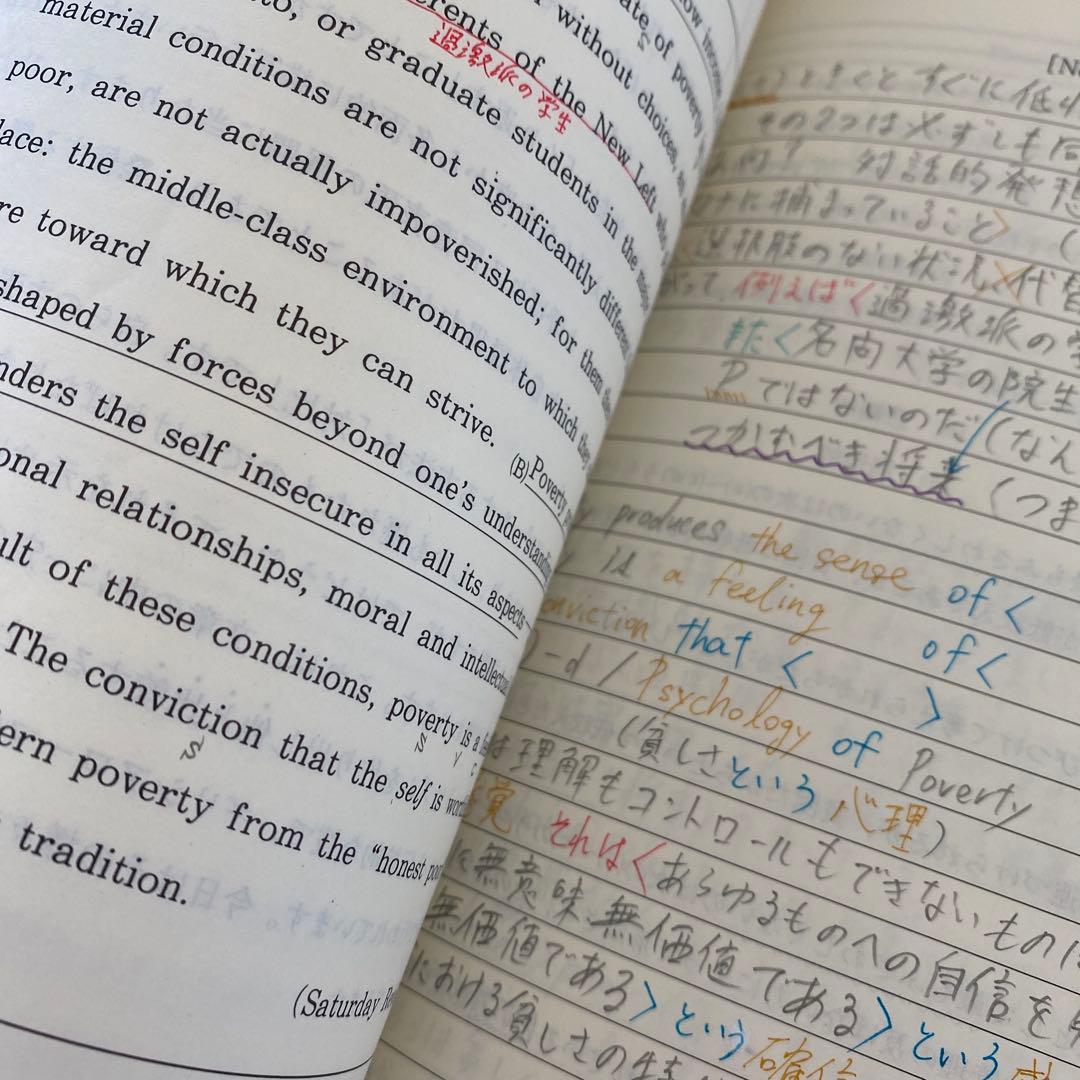 low income
ate of poverty
s
without choices, as
erents of the New Left who
過激派の学生
to, or graduate students in the same
material conditions are not significantly different
poor, are not actually impoverished; for them the
lace: the middle-class environment to which they
re toward which they can strive.
(B)Poverty
shaped by forces beyond one's understanding
nders the self insecure in all its aspects
onal relationships, moral and intellectual
ult of these conditions, poverty is a
S V C
The conviction that the self is
S
ern poverty from the "honest poor
tradition.
(Saturday Re
[N
ときくと すぐに低
その2つは必ずしも同
対話的発想
ナに捕まっていること〉 (
選択肢のない状況 代替
例えばく過激派の学
またく名向大学の院生
P ではないのだ (なん
つかむべき将来 (つま
produces the sense of <
is a feeling of <
conviction that < >
-d / Psychology of Poverty
(貧しさという心理)
は理解もコントロールもできないものに
覚 それはくあらゆるものへの自信を
無意味、無価値である〉という
無価値である〉という確信
における貧しさの生